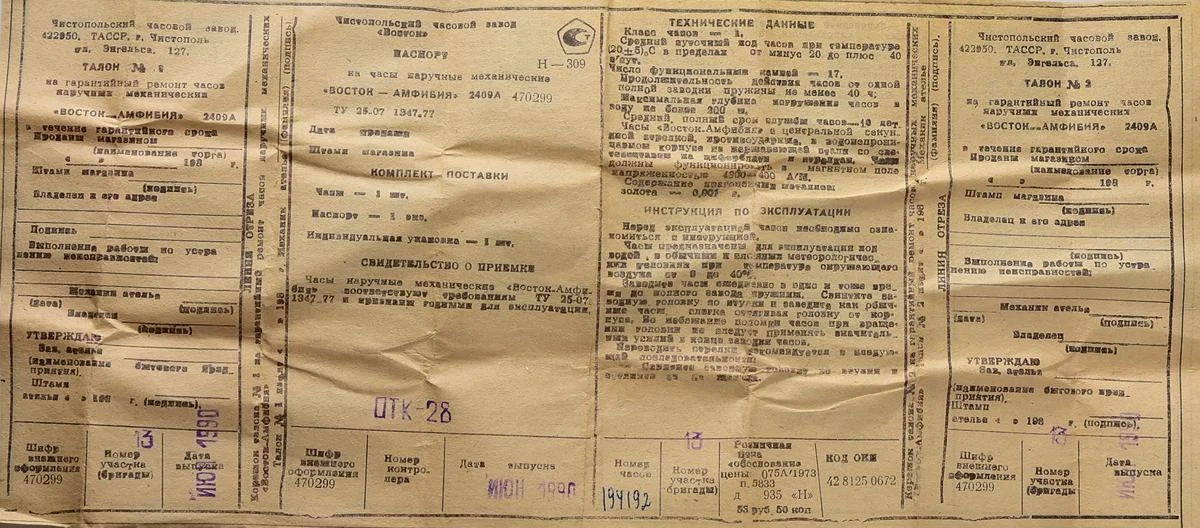 Чистопольский часовой завод.
422950. ТАССР, г. Чистополь
ул. Энгельса. 127.
ТАЛОН №
на гарантийный ремонт часов
наручных механических
«ВОСТОК—АМФИБИЯ» 2409А
в течение гарантийного срока
Проданы магазином
(наименование торга)
« » 198 г.
Штамп магазина
(подпись)
Владелец и его адрес
Подпись
Выполнены работы по устра
нению неисправностей
Механик ателье
(дата)
Владелец
(подпись)
УТВЕРЖДАЮ
Зав. ателье
(наименование бытового пред.
приятия).
Штамп
ателье « » 198 г. (подпись).
13
ИЮН 1990
Шифр
внешнего
оформления
470299
Номер
участка
(бригады)
Дата
выпуска
ЛИНИЯ ОТРЕЗА
Чистопольский часовой завод
«Восток»
ПАСПОРТ
Н—309
на часы наручные механические
«ВОСТОК—АМФИБИЯ» 2409А 470299
ТУ 25.07 1347.77
Дата продажи
Штамп магазина
КОМПЛЕКТ ПОСТАВКИ
Часы — 1 шт.
Паспорт — 1 экз.
Индивидуальная упаковка — 1 шт.
СВИДЕТЕЛЬСТВО О ПРИЕМКЕ
Часы наручные механические «Восток-Амфи-
бия» соответствуют требованиям ТУ 25-07.
1347.77 и признаны годными для эксплуатации.
ОТК-28
Шифр
внешнего
оформления
470299
Номер
контро.
лера
Дата выпуска
ИЮН 1990
ТЕХНИЧЕСКИЕ ДАННЫЕ
Класс часов — 1.
Средний суточный ход часов при температуре
(20±5)°С в пределах от минус 20 до плюс 40
с/сут.
Число функциональных камней — 17.
Продолжительность действия часов от одной
полной заводки пружины не менее 40 ч;
Максимальная глубина погружения часов в
воду не более 200 м.
Средний, полный срок службы часов—10 лет.
Часы «Восток-Амфибия» с центральной секун-
дной стрелкой, противоударные, в водонепрони-
цаемом корпусе из нержавеющей стали со све-
тосоставом на циферблате и стрелках. Часы
должны функционировать в магнитном поле
напряженностью 4800—400 А/М.
Содержание драгоценных металлов:
золота — 0,001 г.
ИНСТРУКЦИЯ ПО ЭКСПЛУАТАЦИИ
Перед эксплуатацией часов необходимо озна-
комиться с инструкцией.
Часы предназначены для эксплуатации под
водой, в обычных и сложных метеорологичес-
ких условиях при температуре окружающего
воздуха от 0 до 40°.
Заводите часы ежедневно в одно и тоже вре-
мя до полного завода пружины. Свинтите за-
водную головку по втулки и заведите как обыч-
ные часы, слегка оттягивая головку от кор-
пуса. Во избежание поломки часов при враще-
нии головки не следует применять значитель-
ных усилий в конце заводки часов.
Переводить стрелки рекомендуется в следую-
щей последовательности:
13
Номер
часов
194192
Номер
участка
бригады)
Розничная
Цена
«обоснование
цены: 075А/1973
п.5833
д 935 «Н»
53 руб. 50 коп
КОД ОКП
42 8125 0672
Чистопольский часовой завод.
422950. ТАССР, г. Чистополь
ул. Энгельса. 127.
ТАЛОН № 2
на гарантийный ремонт часов
наручных механических
«ВОСТОК—АМФИБИЯ» 2409А
в течение гарантийного срока
Проданы магазином
(наименование торга)
« » 198 г.
Штамп магазина
(подпись)
Владелец и его адрес
(подпись)
Выполнены работы по устра
нению неисправностей;
Механик ателье
(дата) (подпись)
Владелец
(подпись)
УТВЕРЖДАЮ
Зав. ателье
(наименования бытового пред.
приятия).
Штамп
ателье « » 198 г. (подпись).
13
Шифр
внешнего
оформления
470299
Номер
участка
(бригады
Дата
выпуска
ЛИНИЯ ОТРЕЗА